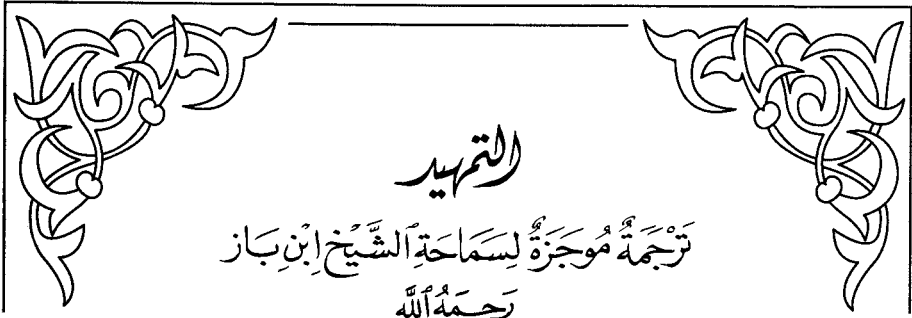 التمهيد
تَرْجَمَةٌ مُوجَزَةٌ لِسَمَاحَةِ ٱلشَّيْخ ابْنِ بَاز
رَحِمَهُ ٱللَّه